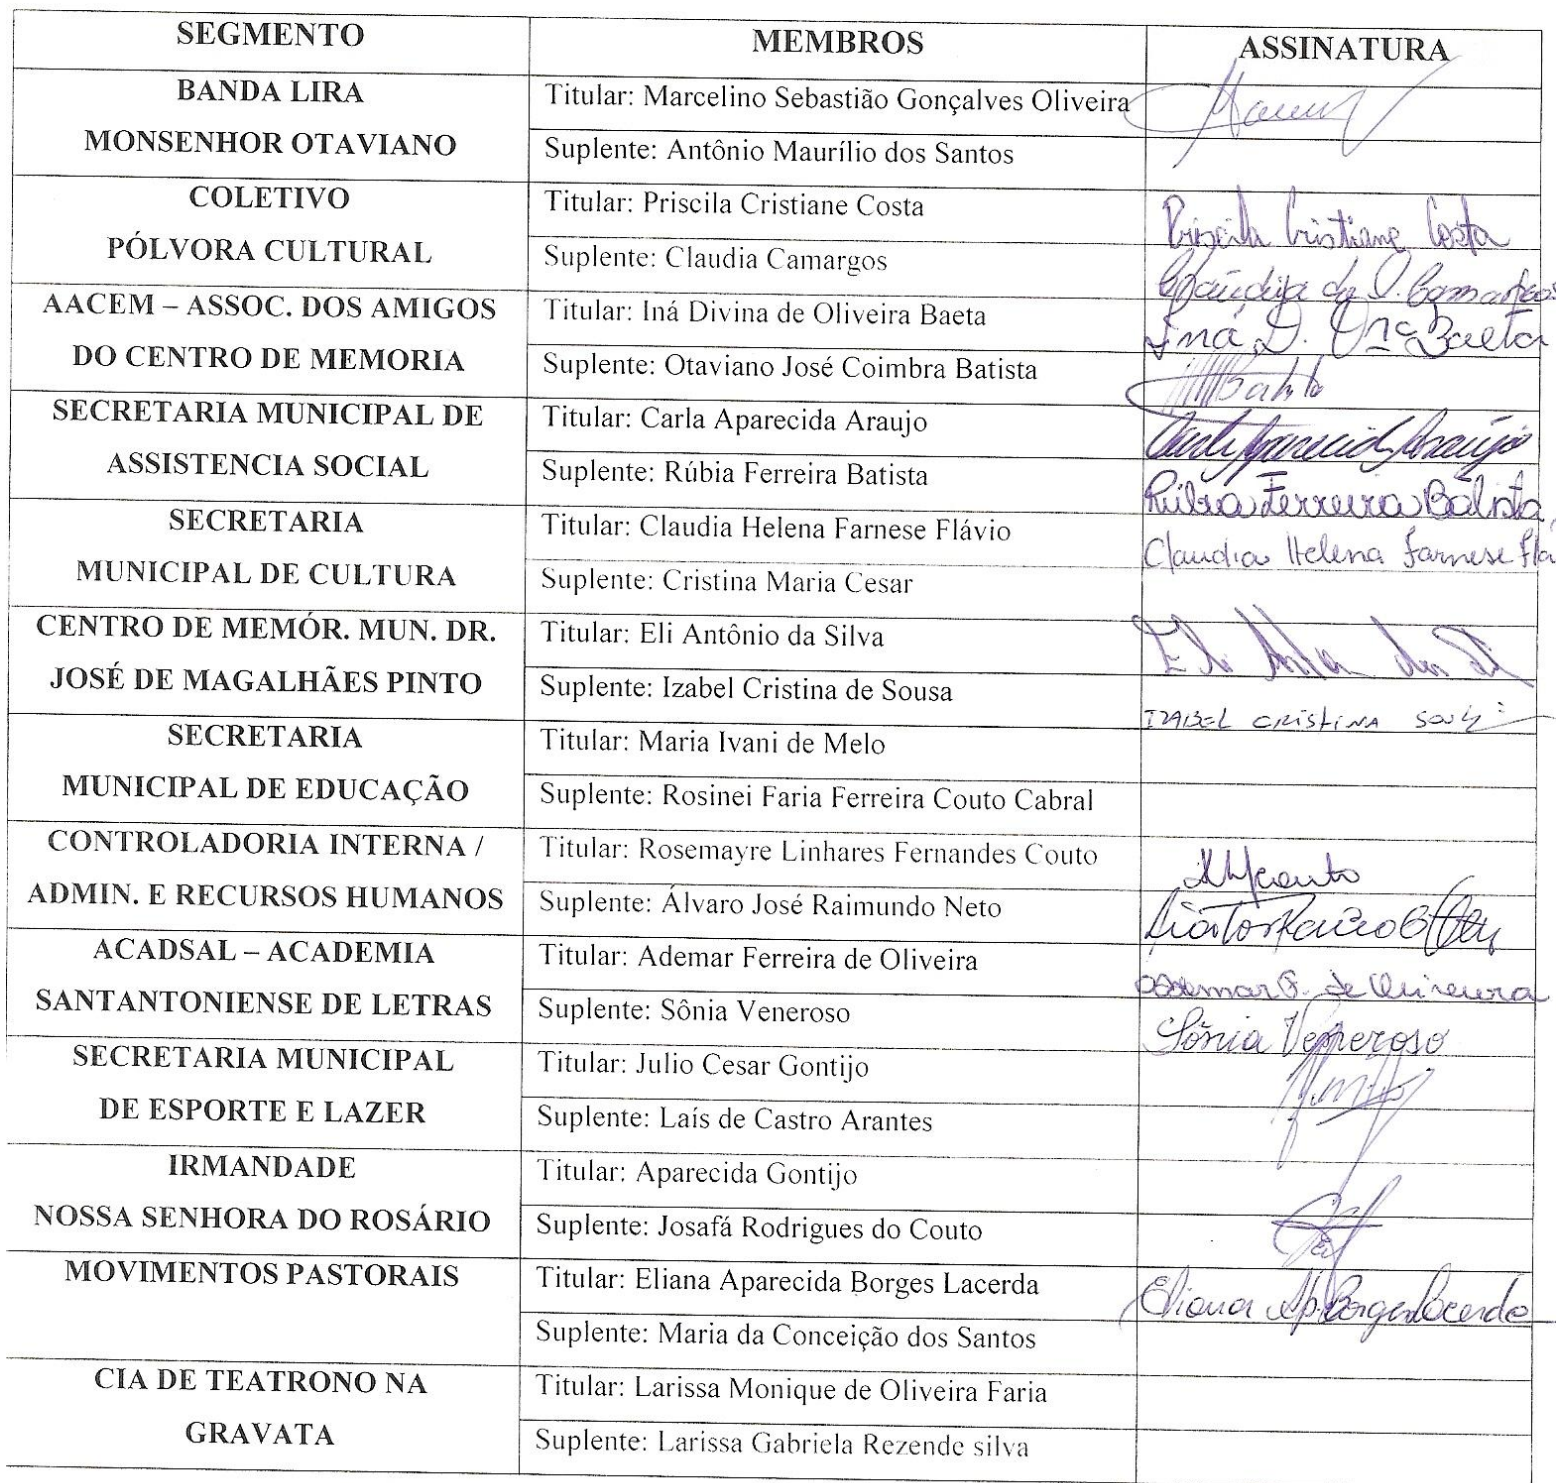 SEGMENTO MEMBROS ASSINATURA
BANDA LIRA
MONSENHOR OTAVIANO
Titular: Marcelino Sebastião Gonçalves Oliveira
Suplente: Antônio Maurílio dos Santos
COLETIVO
PÓLVORA CULTURAL
Titular: Priscila Cristiane Costa Priscila Cristiane Costa
Suplente: Claudia Camargos Cláudia da Camargos
AACEM – ASSOC. DOS AMIGOS
DO CENTRO DE MEMORIA
Titular: Iná Divina de Oliveira Baeta Iná D. Baeta
Suplente: Otaviano José Coimbra Batista
SECRETARIA MUNICIPAL DE
ASSISTENCIA SOCIAL
Titular: Carla Aparecida Araujo Carla Aparecida Araújo
Suplente: Rúbia Ferreira Batista Rúbia Ferreira Batista
SECRETARIA
MUNICIPAL DE CULTURA
Titular: Claudia Helena Farnese Flávio Claudia Helena Farnese Flá
Suplente: Cristina Maria Cesar
CENTRO DE MEMÓR. MUN. DR.
JOSÉ DE MAGALHÃES PINTO
Titular: Eli Antônio da Silva
Suplente: Izabel Cristina de Sousa IZABEL CRISTINA
SECRETARIA
MUNICIPAL DE EDUCAÇÃO
Titular: Maria Ivani de Melo
Suplente: Rosinei Faria Ferreira Couto Cabral
CONTROLADORIA INTERNA /
ADMIN. E RECURSOS HUMANOS
Titular: Rosemayre Linhares Fernandes Couto
Suplente: Álvaro José Raimundo Neto
ACADSAL – ACADEMIA
SANTANTONIENSE DE LETRAS
Titular: Ademar Ferreira de Oliveira Ademar F. de Oliveira
Suplente: Sônia Veneroso Sônia Veneroso
SECRETARIA MUNICIPAL
DE ESPORTE E LAZER
Titular: Julio Cesar Gontijo
Suplente: Laís de Castro Arantes
IRMANDADE
NOSSA SENHORA DO ROSÁRIO
Titular: Aparecida Gontijo
Suplente: Josafá Rodrigues do Couto
MOVIMENTOS PASTORAIS
Titular: Eliana Aparecida Borges Lacerda Eliana Ap. Borges Lacerda
Suplente: Maria da Conceição dos Santos
CIA DE TEATRONO NA
GRAVATA
Titular: Larissa Monique de Oliveira Faria
Suplente: Larissa Gabriela Rezende silva